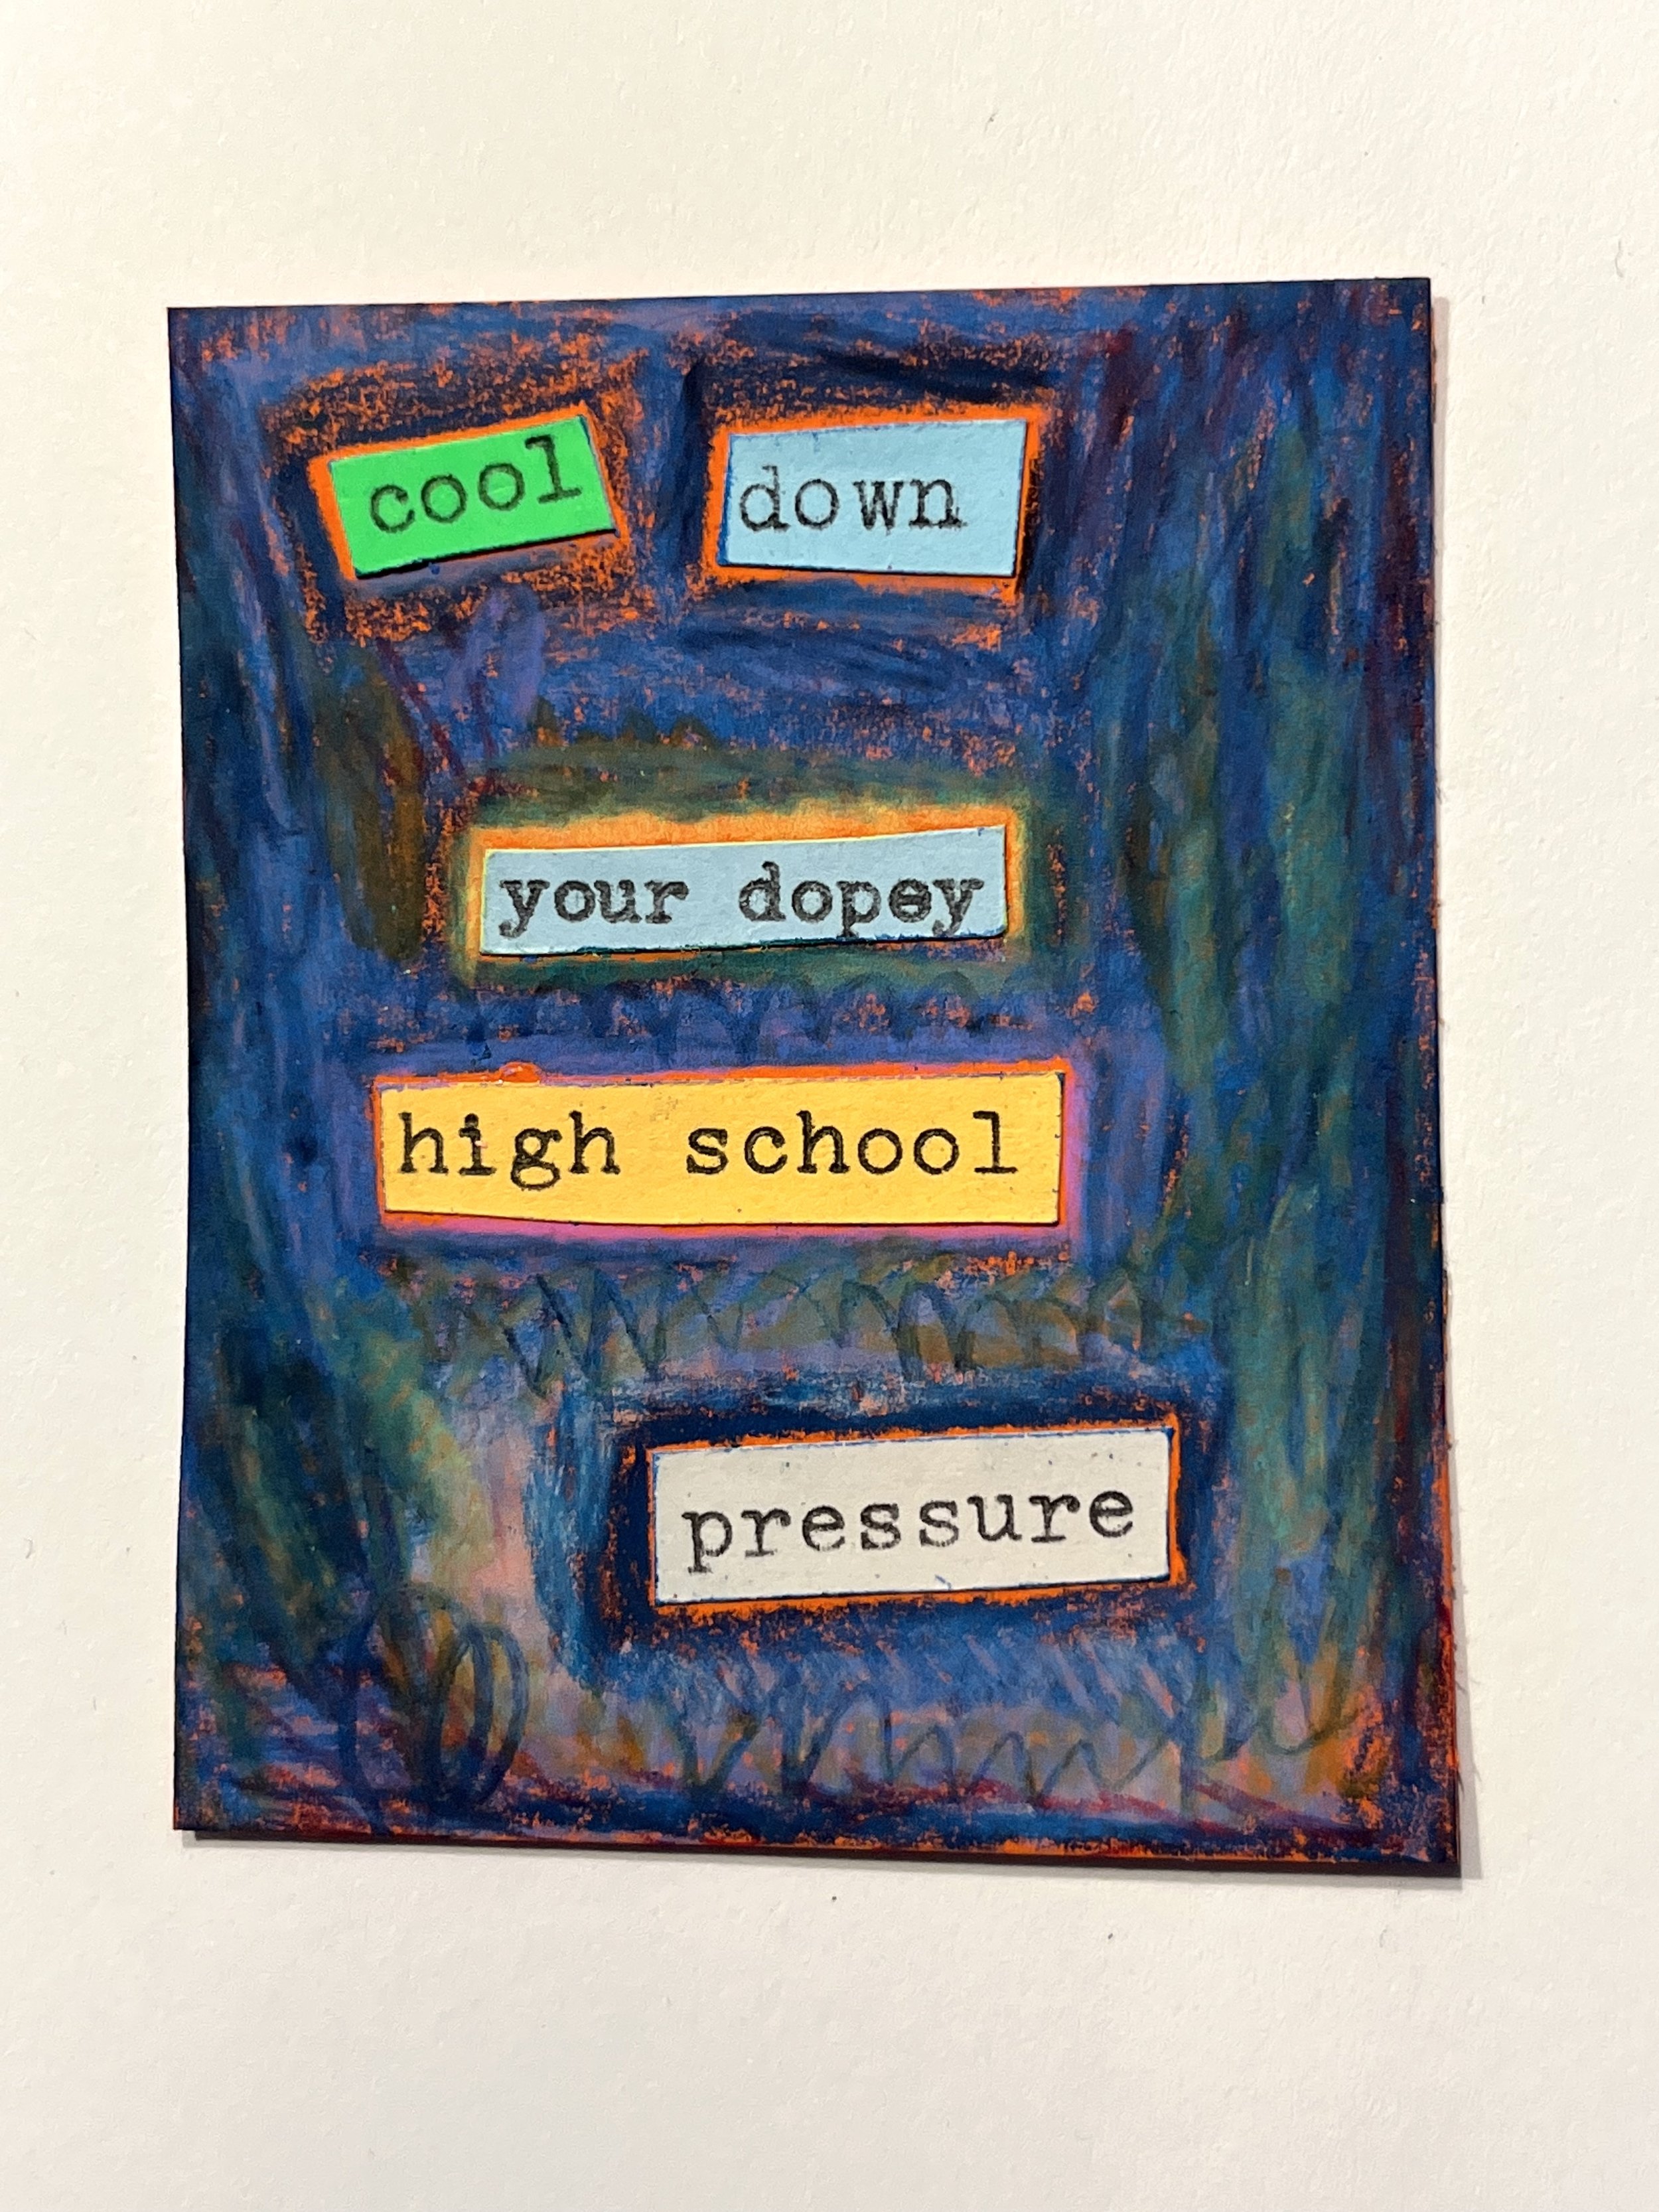 cool down
your dopey
high school
pressure